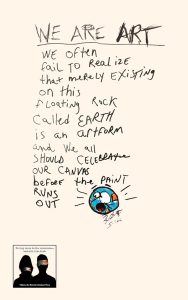 WE ARE ART
WE OFten
fail To REALIZE
that merely EXISTING
on this
floating Rock
Called EARTH
is an artform
and We all
SHOULD CELEBRATE
OUR CANVAS
before the PAINT
RUNS
OUT